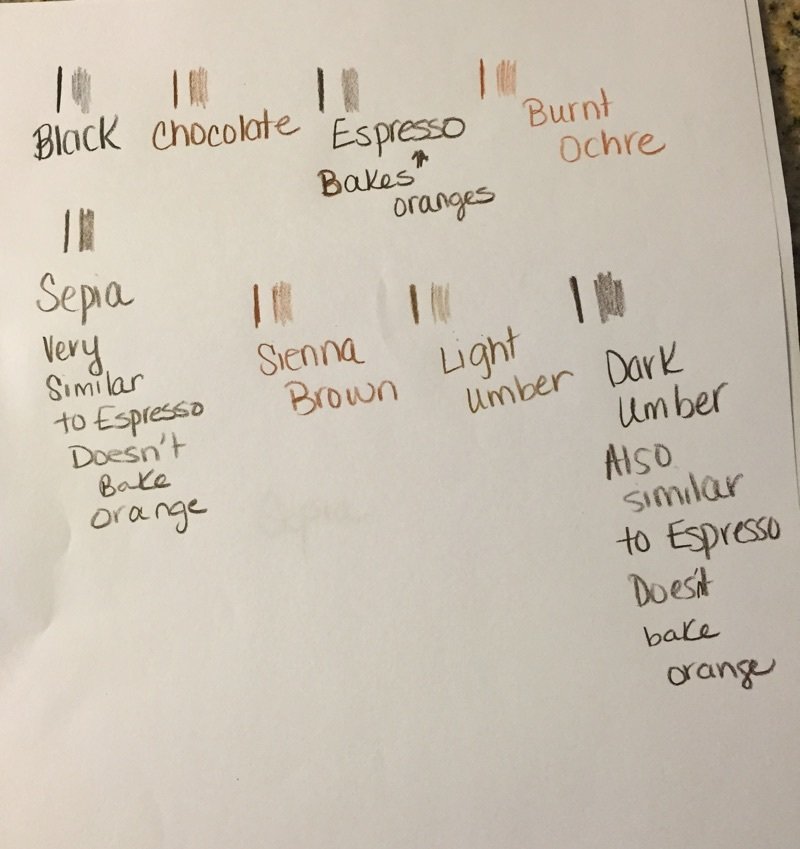 Black
Chocolate
Espresso
Bakes
oranges
Burnt
Ochre
Sepia
Very
Similar
to Espresso
Doesn't
Bake
orange
Sienna
Brown
Light
Umber
Dark
Umber
Also
similar
to Espresso
Does'nt
bake
orange